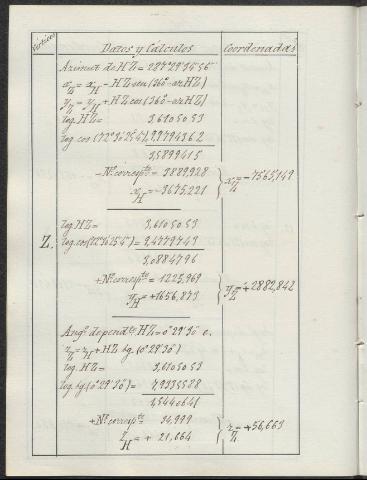 Vértices Datos y Cálculos Coordenadas
Azimut de HZ = 287°29'34"56"
x_Z = x_H - HZ sen (360° - az HZ)
y_Z = y_H + HZ cos (360° - az HZ)
log. HZ = 3,6105053
log. cos (72°30'25"4) 9,9794362
3,5899415
- N.º corresp.te = 3889,928
x_H = -3675,221
x_Z = -7565,149
Z.
log. HZ = 3,6105053
log. cos = 9,4779743
3,0884796
+ N.º corresp.te = 1225,969
y_H = +1656,873
y_Z = +2882,842
Ang.º depend.te HZ = 0°29'30" e.
z_Z = z_H + HZ tg. (0°29'30")
log. HZ = 3,6105053
log. tg (0°29'30") = 7,9335588
1,5440641
+ N.º corresp.te 34,999
z_H = + 21,664
z_Z = +56,663